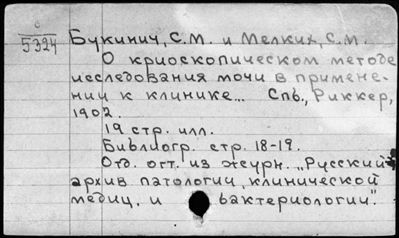 с
5324
Букинич, С.М. и Мелких, С.М.
О криоскопическом методе
исследования мочи в примене-
нии к клинике... Спб., Риккер,
1902.
19 стр. илл.
Библиогр. стр. 18-19.
Отд. отт. из журн. „Русский
архив патологии, клинической
медиц. и бактериологии".